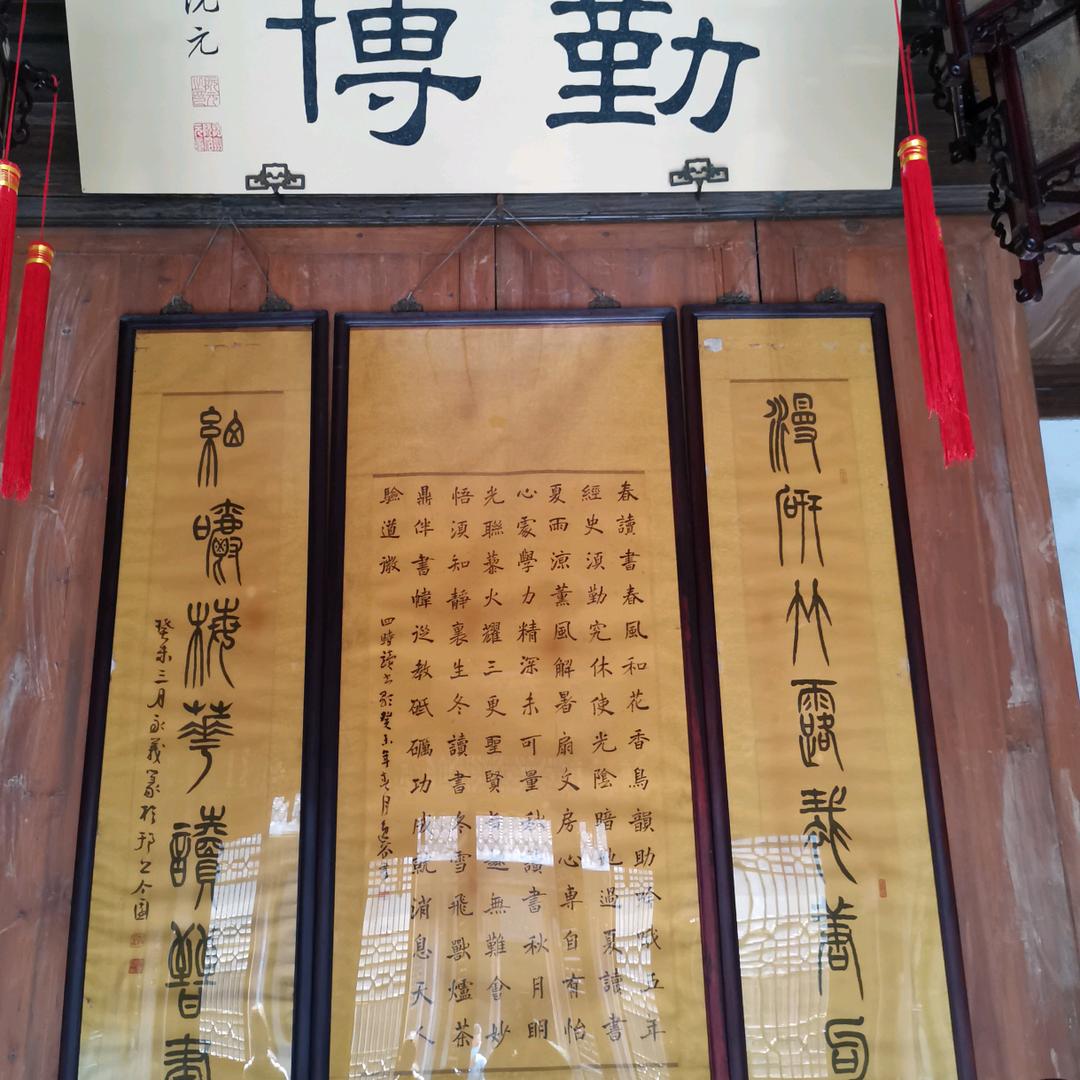 勤博
阮元
漫研竹露裁唐句
春讀書春風和花香鳥韻助吟哦五年
經史須勤究休使光陰暗地過夏讀書
夏雨涼薰風解暑扇文房心專自有怡
心處學力精深未可量秋讀書秋月明
光聯藜火耀三更聖賢無難會妙
悟須知靜裏生冬讀書冬雪飛獸爐茶
鼎伴書幃從教砥礪功成就消息天人
驗道微
四時讀書歌癸未年月
細嚼梅華讀晉書
癸未三月永義篆於邗上个園